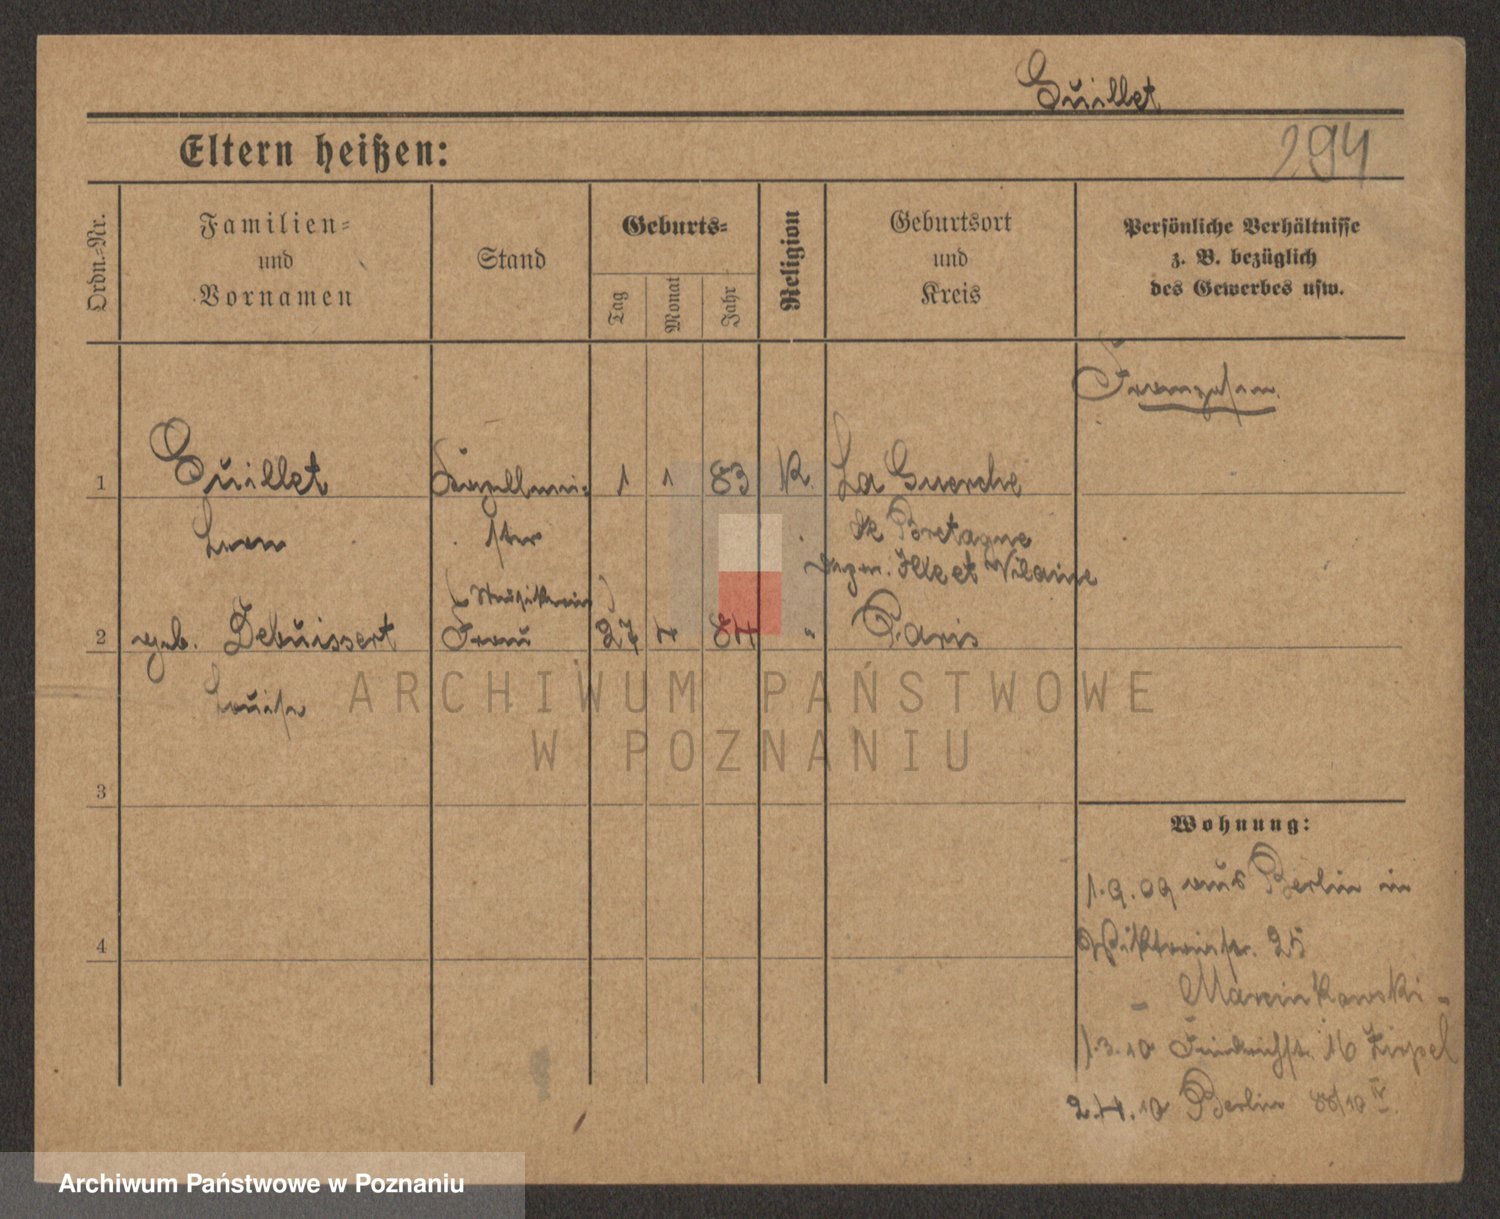 Guillet
Eltern heißen:
294
Ordn.-Nr.
Familien-
und
Vornamen
Stand
Geburts-
Tag
Monat
Jahr
Religion
Geburtsort
und
Kreis
Persönliche Verhältnisse
z. B. bezüglich
des Gewerbes usw.
Franzosen
1 Guillet Kapellmei- 1 1 83 K. La Guerche
Leon ster Bretagne
Ille et Vilaine
(Musikerin)
2 geb. Debuissert Frau 27 4 84 " Paris
Louise
ARCHIWUM PAŃSTWOWE
W POZNANIU
3
Wohnung:
1.9.09 aus Berlin in
Viktoriastr. 25
- Marcinkowski -
4
1.3.10 Friedrichstr. 16 Zippel
2.4.10 Berlin
Archiwum Państwowe w Poznaniu